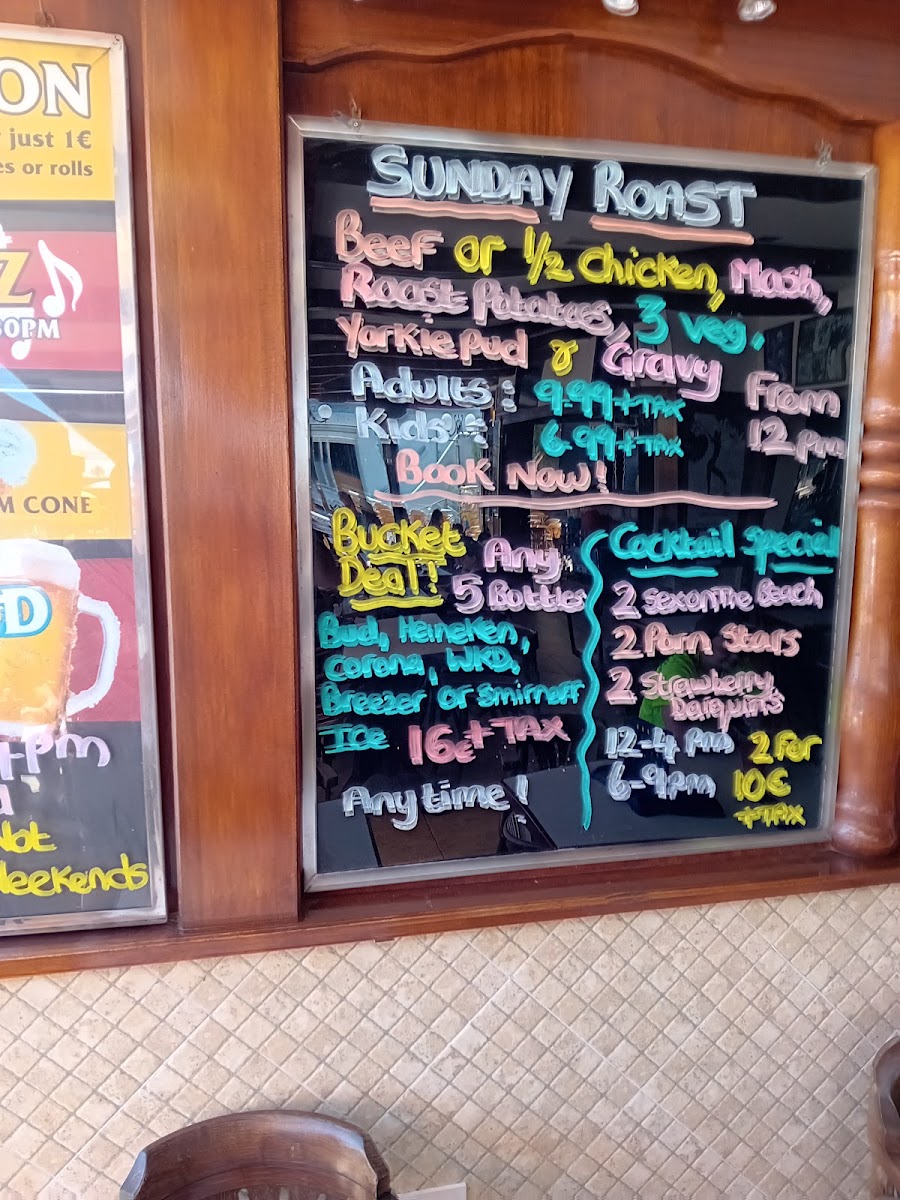 ON
just 1€
es or rolls
Z
30PM
M CONE
D
4pm
Not
Weekends
SUNDAY ROAST
Beef or 1/2 Chicken, Mash,
Roast Potatoes, 3 veg,
Yorkie pud & Gravy
Adults: 9.99+TAX
Kids: 6.99+TAX
From
12pm
BOOK NOW!
Bucket
Deal!
Any
5 Bottles
Bud, Heineken,
Corona, WKD,
Breezer or Smirnoff
ICe 16€+TAX
Anytime!
Cocktail Special
2 sex on The Beach
2 Porn Stars
2 Strawberry
Daiquiris
12-4pm
6-9pm
2 For
10€
+TAX